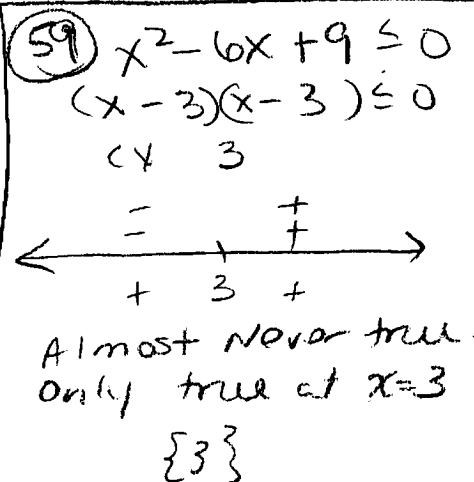 59 x²-6x+9≤0
(x-3)(x-3)≤0
3
- +
- +
+ 3 +
Almost Never true.
Only true at x=3
{3}